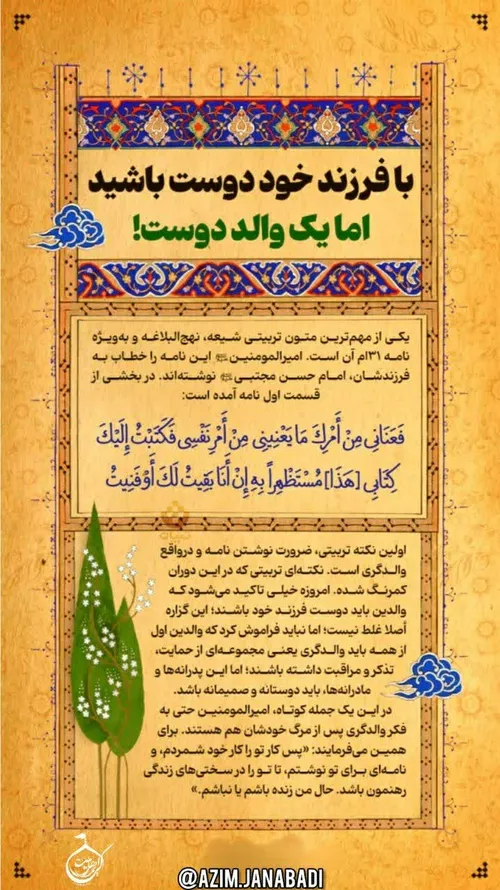 با فرزند خود دوست باشید
اما یک والد دوست!
یکی از مهم‌ترین متون تربیتی شیعه، نهج‌البلاغه و به‌ویژه
نامه ۳۱ام آن است. امیرالمومنین این نامه را خطاب به
فرزندشان، امام حسن مجتبی نوشته‌اند. در بخشی از
قسمت اول نامه آمده است:
فَعَنَانِی مِنْ أَمْرِكَ مَا یَعْنِینِی مِنْ أَمْرِ نَفْسِی فَکَتَبْتُ إِلَیْكَ
کِتَابِی [هَذَا] مُسْتَظْهِراً بِهِ إِنْ أَنَا بَقِیتُ لَكَ أَوْ فَنِیتُ
اولین نکته تربیتی، ضرورت نوشتن نامه و درواقع
والدگری است. نکته‌ای تربیتی که در این دوران
کمرنگ شده. امروزه خیلی تاکید می‌شود که
والدین باید دوست فرزند خود باشند؛ این گزاره
أصلا غلط نیست؛ اما نباید فراموش کرد که والدین اول
از همه باید والدگری یعنی مجموعه‌ای از حمایت،
تذکر و مراقبت داشته باشند؛ اما این پدرانه‌ها و
مادرانه‌ها، باید دوستانه و صمیمانه باشد.
در این یک جمله کوتاه، امیرالمومنین حتی به
فکر والدگری پس از مرگ خودشان هم هستند. برای
همین می‌فرمایند: «پس کار تو را کار خود شمردم، و
نامه‌ای برای تو نوشتم، تا تو را در سختی‌های زندگی
رهنمون باشد. حال من زنده باشم یا نباشم.»
@AZIM.JANABADI